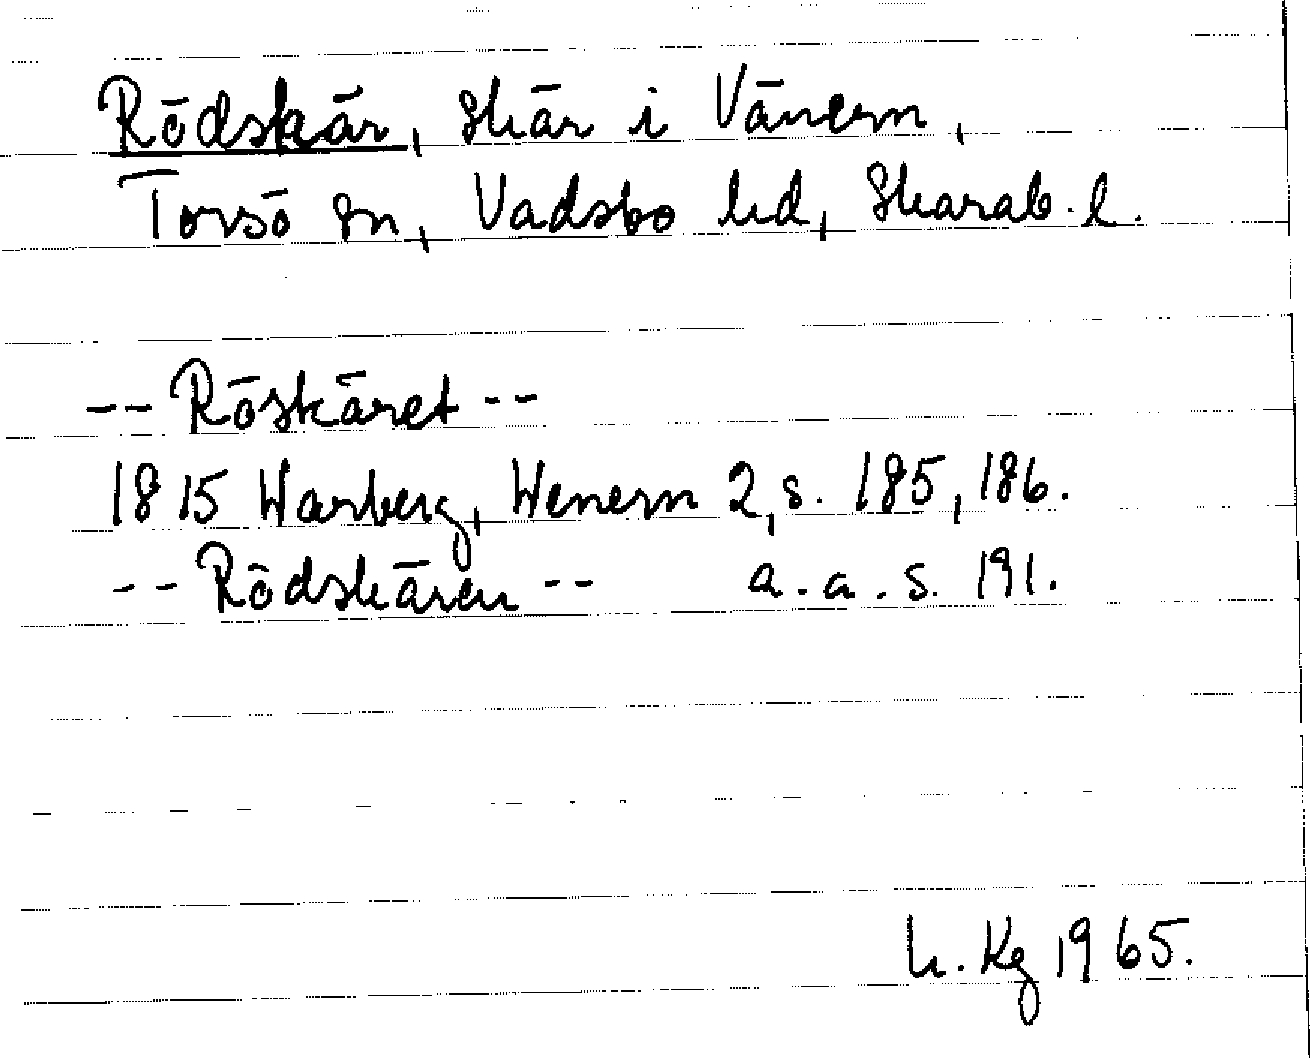 Rödskär, skär i Vänern,
Torsö sn, Vadsbo hd, Skarab. l.
-- Röskäret --
1815 Warberg, Wenern 2, s. 185, 186.
-- Rödskären -- a. a. s. 191.
h. Kg 1965.